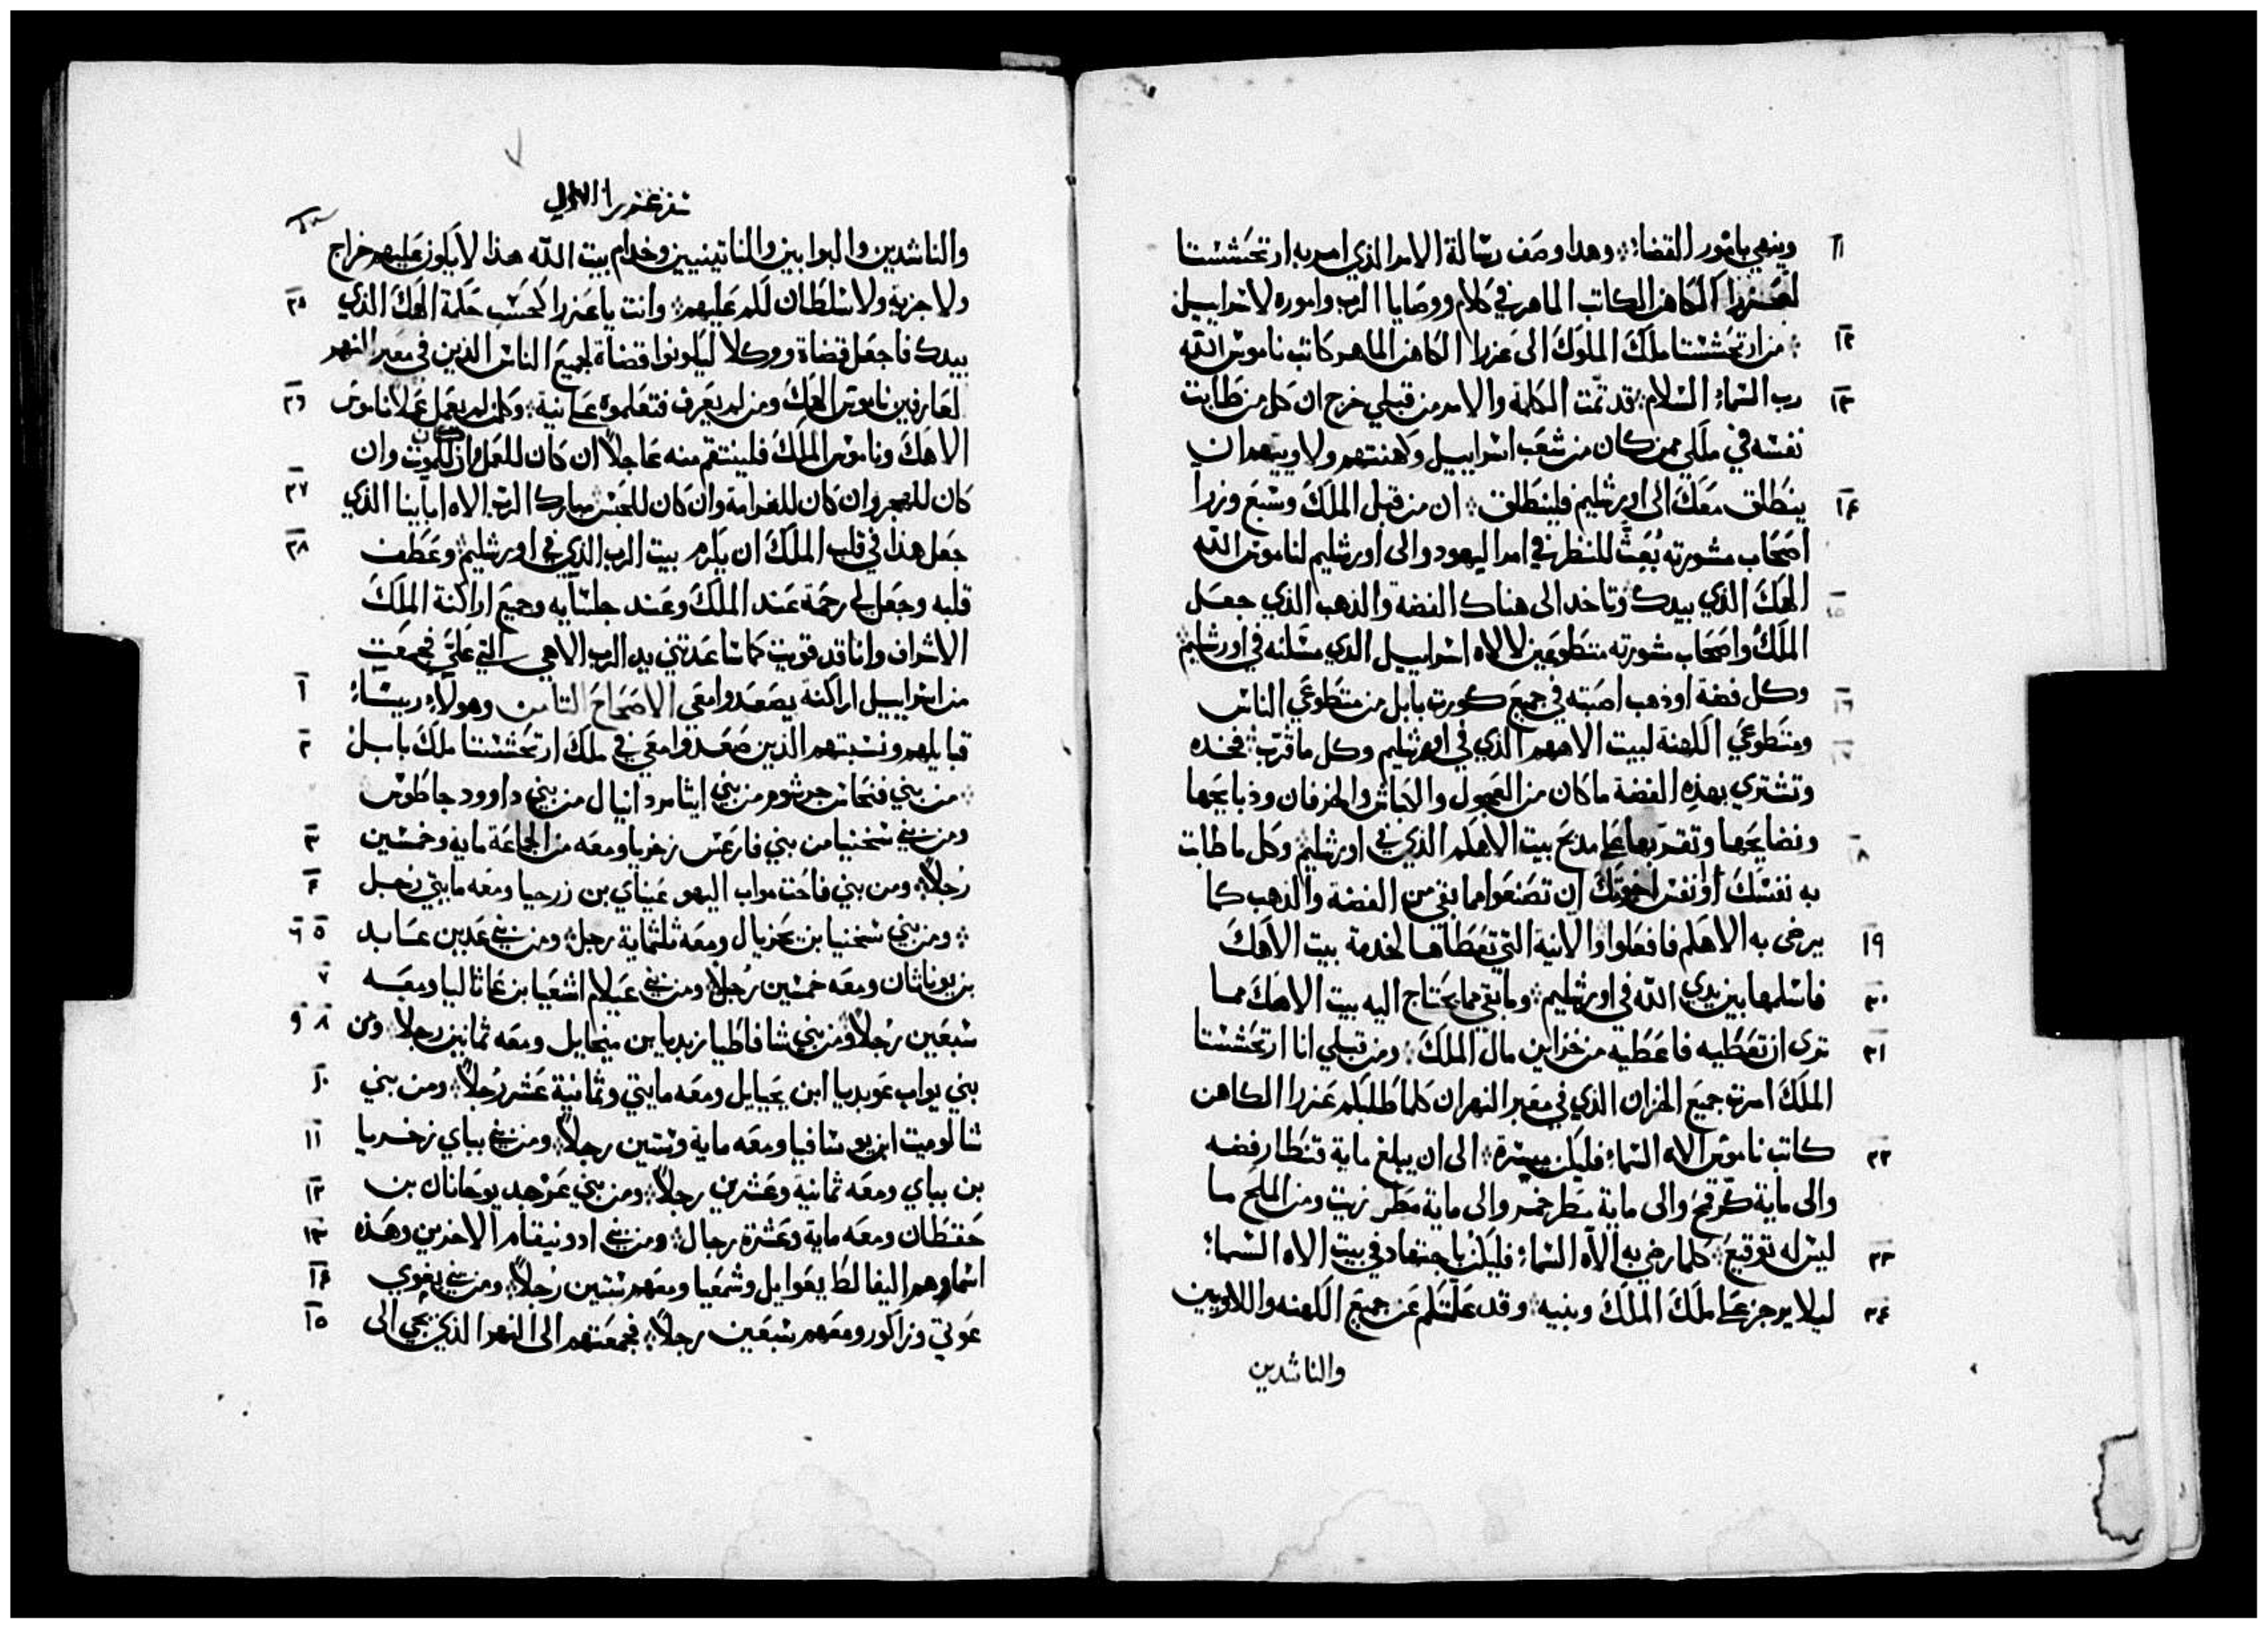 ١١ وينهي بامور القضاء ❖ وهذا وصف رسالة الامر الذي امر به ارتحششتا
لعنزرا الكاهن الكاتب الماهر في كلام ووصايا الرب واموره لاسراييل
١٢ ❖ من ارتحششتا ملك الملوك الى عزرا الكاهن الماهر كاتب ناموس الله
١٣ رب السماء السلام ❖ قد تمت الكلمة والامر من قبلي خرج ان كل من طابت
نفسه في ملكي ممن كان من شعب اسراييل وكهنتهم ولاوييهم ان
١٤ ينطلق معك الى اورشليم فلينطلق ❖ ان من قبل الملك وسبع وزرآ
اصحاب مشورته بُعِثَ للنظر في امر اليهود والى اورشليم لناموس الله
١٥ الهك الذي بيدك وتاخد الى هناك الفضه والذهب الذي جعل
الملك واصحاب مشورته متطوعين لالاه اسراييل الدي مسكنه في اورشليم
١٦ وكل فضة او ذهب اصبته في جميع كورة بابل من متطوعي الناس
١٧ ومتطوعي الكهنة لبيت الاههم الذي في اورشليم وكل ما قرب ❖ فخده
وتشتري بهذه الفضة ما كان من العجول والكباش والخرفان وذبايحها
١٨ ونضايحها وتقربها على مدبح بيت الاهكم الذي في اورشليم ❖ وكل ما طابت
به نفسك او نفس اخوتك ان تصنعوا مما بقي من الفضة والذهب كما
١٩ يرضى به الاهكم فافعلوا والانية التي تعطاها لخدمة بيت الاهك
٢٠ فاسلمها بين يدي الله في اورشليم ❖ وما بقي مما يحتاج اليه بيت الاهك مما
٢١ ترى ان تعطيه فاعطيه من خزاين مال الملك ❖ ومن قبلي انا ارتحششتا
الملك امرت جميع الخزان الذي في معبر النهر ان كلما طلبكم عزرا الكاهن
٢٢ كاتب ناموس الاه السماء فليكن ميسرة ❖ الى ان يبلغ ماية قنطار فضه
والى ماية كر قمح والى ماية مطر خمر والى ماية مطر زيت ومن الملح ما
٢٣ ليس له توقيع ❖ كلما رضي به الاه السماء فليكن باجتهاد في بيت الاه السماء
٢٤ ليلا يوجز على ملك الملك وبنيه ❖ وقد علمتكم عن جميع الكهنه واللاويين
والناشدين
سفر عزرا الاول
والناشدين والبوابين والناتينيين وخدام بيت الله هذا لا يكون عليهم خراج
٢٥ ولا جزية ولا سلطان لكم عليهم ❖ وانت يا عزرا كحسب حكمة الهك الذي
بيدك فاجعل قضاة ووكلا ليكونوا قضاة لجميع الناس الذين في معبر النهر
٢٦ لعارفين ناموس الهك ومن لم يعرف فتعلموه علانية ❖ وكل من لم يعمل عملا ناموس
الاهك وناموس الملك فلينتقم منه عاجلاً ان كان للموت وان
٢٧ كان للهجر وان كان للغرامة وان كان للحبس ❖ مبارك الرب الاه اباينا الذي
٢٨ جعل هذا في قلب الملك ان يكرم بيت الرب الذي في اورشليم ❖ وعطف
قلبه وجعل لي رحمة عند الملك وعند جلسآيه وجميع اراكنة الملك
الاشراف وانا قد قويت كما ساعدتني يد الرب الاهي التي علي فجمعت
١ من اسراييل اراكنة يصعدوا معي الاصحاح التامن وهولاء ريسآء
٢ قبايلهم ونسبتهم الذين صعدوا معي في ملك ارتحششتا ملك بابل
❖ من بني فنحاس جرشوم من بني ايثامر دانيال من بني داوود حاطوس
٣ ومن بني شخنيا من بني فارعس زخريا ومعه من الجماعة ماية وخمسين
٤ رجلاً ❖ ومن بني فاحت مواب اليهو عيناي بن زرحيا ومعه مايتي رجل
٥ ٦ ❖ ومن بني شخنيا بن يحزيال ومعه ثلثماية رجل ❖ ومن بني عدين عابد
٧ بن يوناثان ومعه خمسين رجلاً ومن بني عيلام اشعيا بن عاثاليا ومعه
٨ ٩ سبعين رجلاً ومن بني شافاطيا زبديا بن ميخايل ومعه ثمانين رجلاً ❖ ومن
١٠ بني يواب عوبديا ابن يحيايل ومعه مايتي وثمانية عشر رجلاً ❖ ومن بني
١١ شالوميت ابن يوسافيا ومعه ماية وستين رجلاً ❖ ومن بني بباي زخريا
١٢ بن بباي ومعه ثمانية وعشرين رجلاً ❖ ومن بني عزجد يوحانان بن
١٣ حقطان ومعه ماية وعشرة رجال ❖ ومن بني ادونيقام الاخرين وهذه
١٤ اسماوهم اليفالط يعوايل وشمعيا ومعهم ستين رجلاً ❖ ومن بني بغوي
١٥ عوتي وزاكور ومعهم سبعين رجلاً ❖ فجمعتهم الى النهر الذي يجي الى